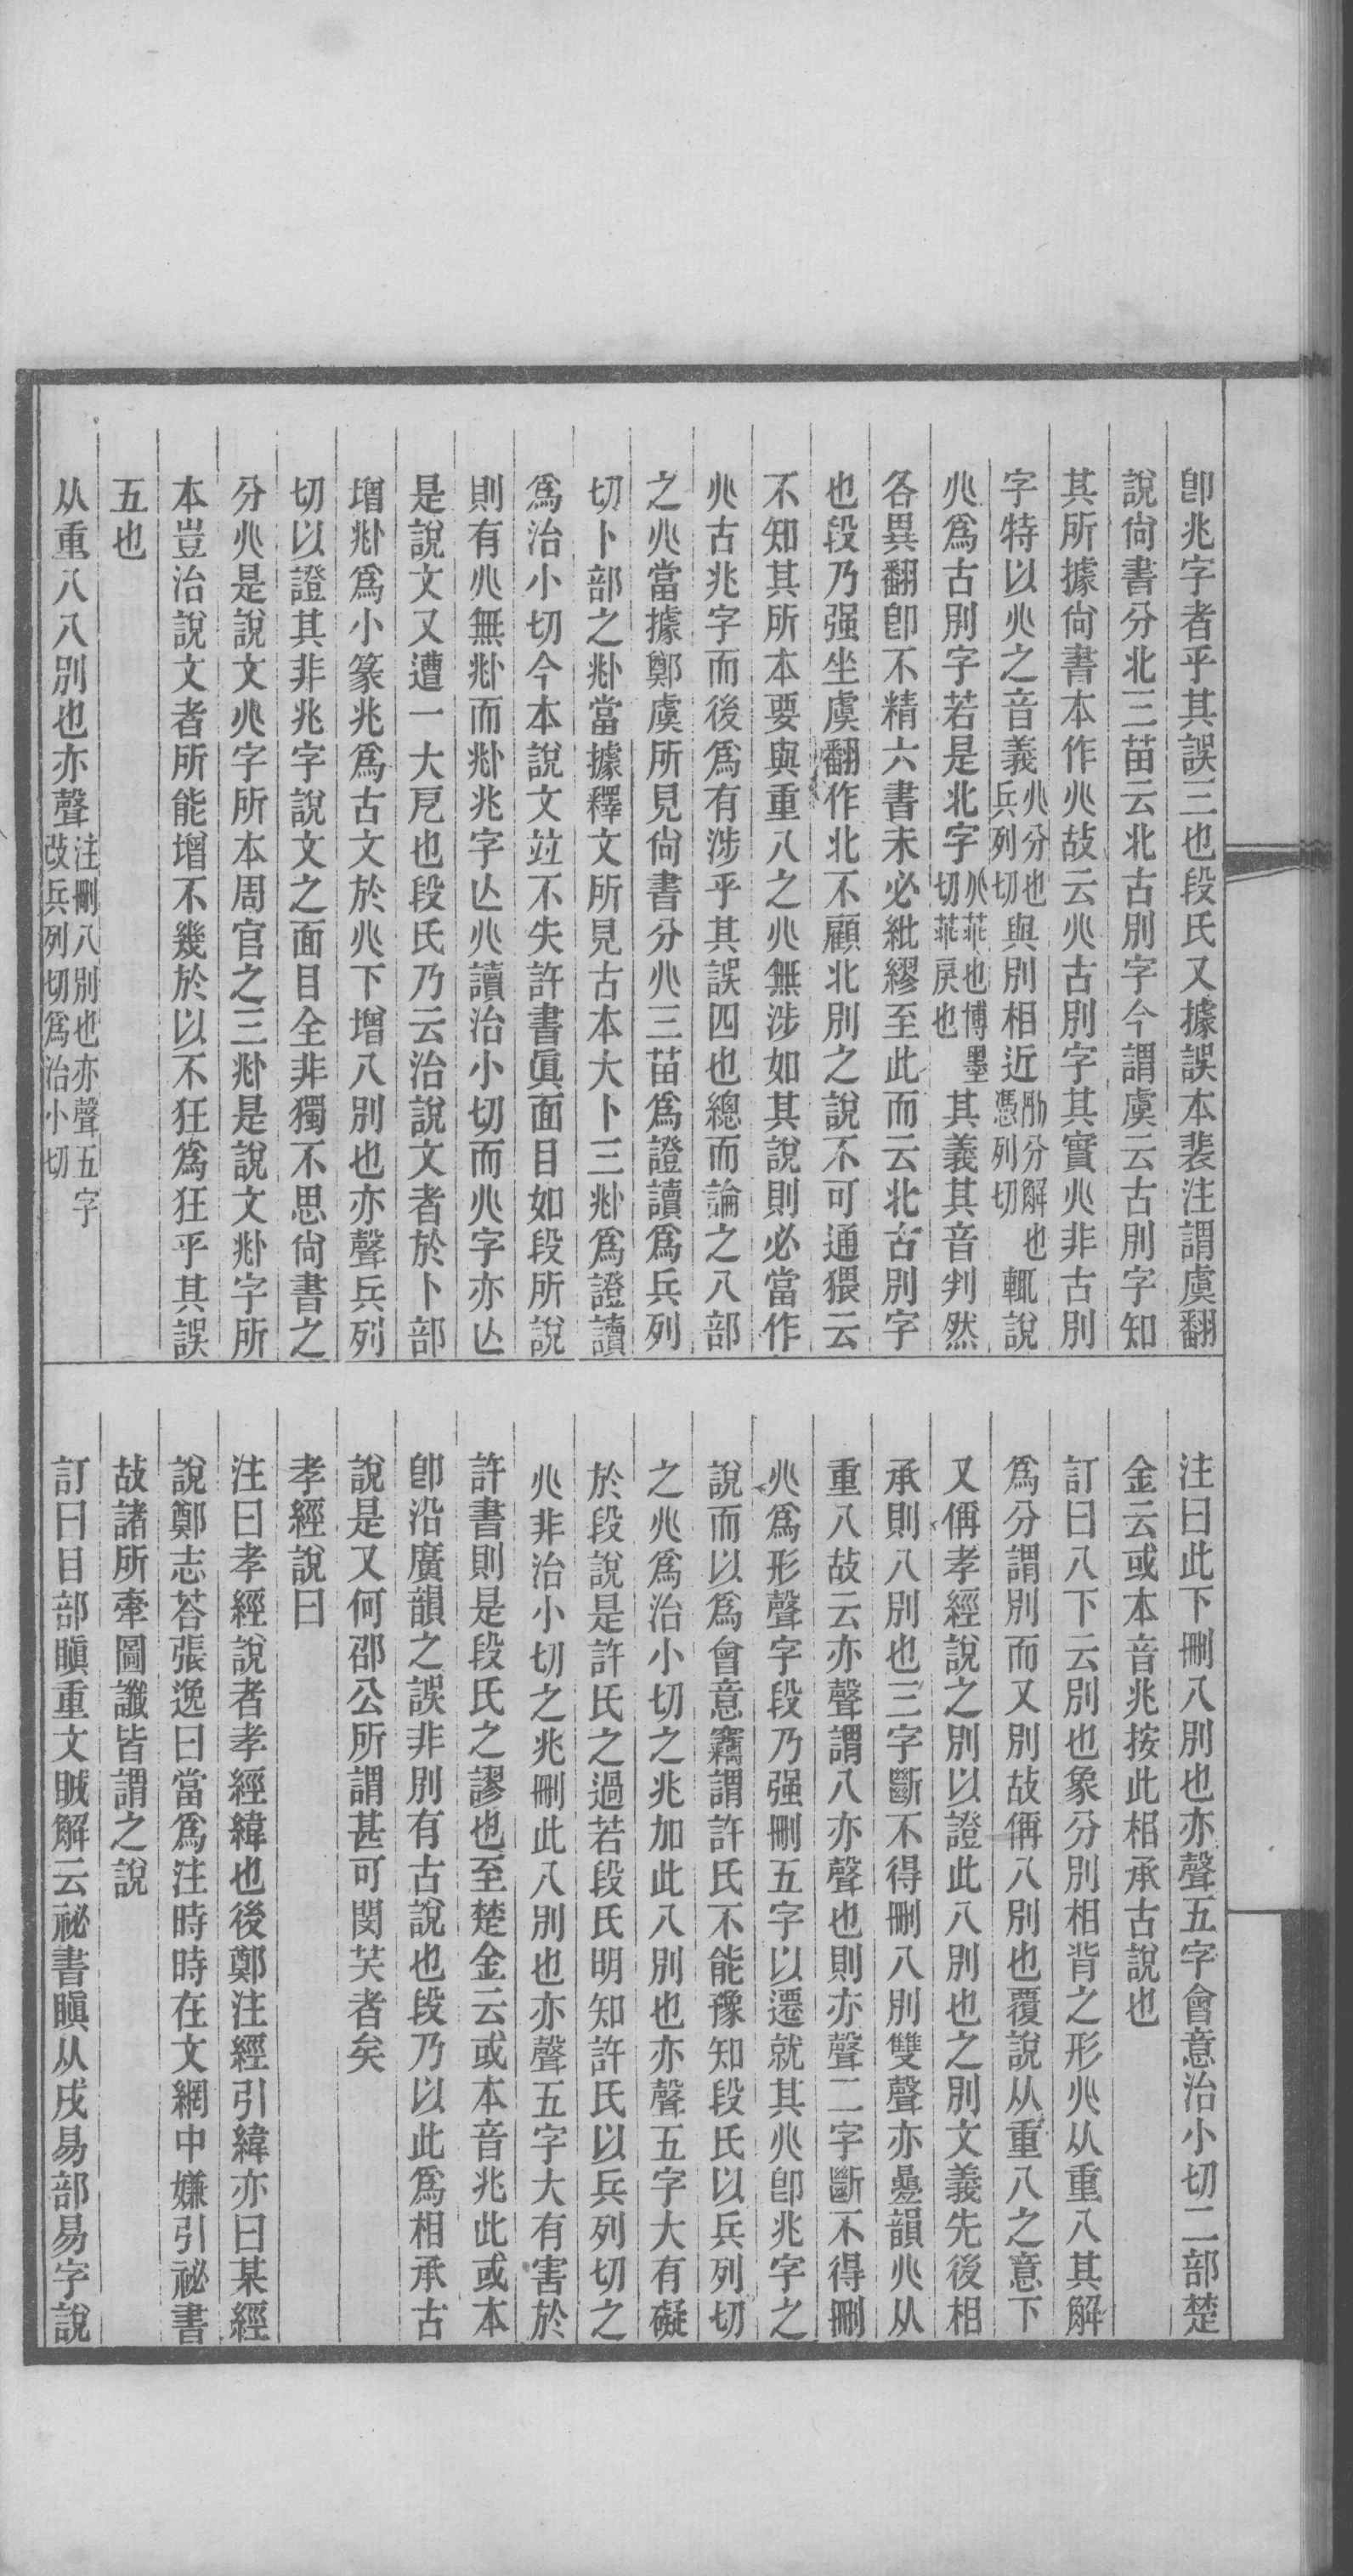 卽兆字者乎其誤三也段氏又據誤本裴注謂虞翻
說尙書分北三苗云北古別字今謂虞云古別字知
其所據尙書本作𠔁故云𠔁古別字其實𠔁非古別
字特以𠔁之音義𠔁分也兵列切與別相近𠛰分解也憑列切輒說
𠔁爲古別字若是北字𠔁菲也博墨切菲戾也其義其音判然
各異翻卽不精六書未必紕繆至此而云北古別字
也段乃强坐虞翻作北不顧北別之說不可通猥云
不知其所本要與重八之𠔁無涉如其說則必當作
𠔁古兆字而後爲有涉乎其誤四也總而論之八部
之𠔁當據鄭虞所見尙書分𠔁三苗爲證讀爲兵列
切卜部之𠧞當據釋文所見古本大卜三𠧞爲證讀
爲治小切今本說文竝不失許書眞面目如段所說
則有𠔁無𠧞而𠧞兆字亾𠔁讀治小切而𠔁字亦亾
是說文又遭一大戹也段氏乃云治說文者於卜部
增𠧞爲小篆兆爲古文於𠔁下增八別也亦聲兵列
切以證其非兆字說文之面目全非獨不思尙書之
分𠔁是說文𠔁字所本周官之三𠧞是說文𠧞字所
本豈治說文者所能增不幾於以不狂爲狂乎其誤
五也
从重八八別也亦聲注刪八別也亦聲五字改兵列切爲治小切
注曰此下刪八別也亦聲五字會意治小切二部楚
金云或本音兆按此相承古說也
訂曰八下云別也象分別相背之形𠔁从重八其解
爲分謂別而又別故偁八別也覆說从重八之意下
又偁孝經說之別以證此八別也之別文義先後相
承則八別也三字斷不得刪八別雙聲亦㬪韻𠔁从
重八故云亦聲謂八亦聲也則亦聲二字斷不得刪
𠔁爲形聲字段乃强刪五字以遷就其𠔁卽兆字之
說而以爲會意竊謂許氏不能豫知段氏以兵列切
之𠔁爲治小切之兆加此八別也亦聲五字大有礙
於段說是許氏之過若段氏明知許氏以兵列切之
𠔁非治小切之兆刪此八別也亦聲五字大有害於
許書則是段氏之謬也至楚金云或本音兆此或本
卽沿廣韻之誤非別有古說也段乃以此爲相承古
說是又何邵公所謂甚可閔笑者矣
孝經說曰
注曰孝經說者孝經緯也後鄭注經引緯亦曰某經
說鄭志荅張逸曰當爲注時時在文網中嫌引祕書
故諸所牽圖讖皆謂之說
訂曰目部瞋重文䀼解云祕書瞋从戌易部易字說